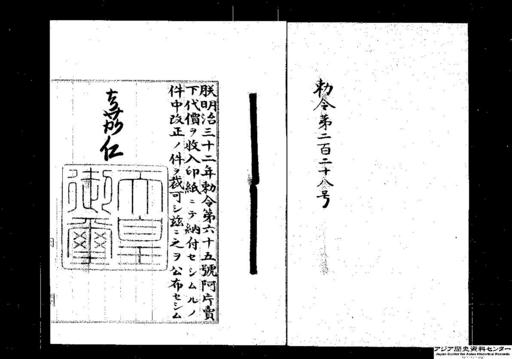 勅令第二百二十八号
朕明治三十二年勅令第六十五號阿片賣
下代價ヲ收入印紙ニテ納付セシムルノ
件中改正ノ件ヲ裁可シ茲ニ之ヲ公布セシム
嘉仁
天皇
御璽
アジア歴史資料センター
Japan Center for Asian Historical Records